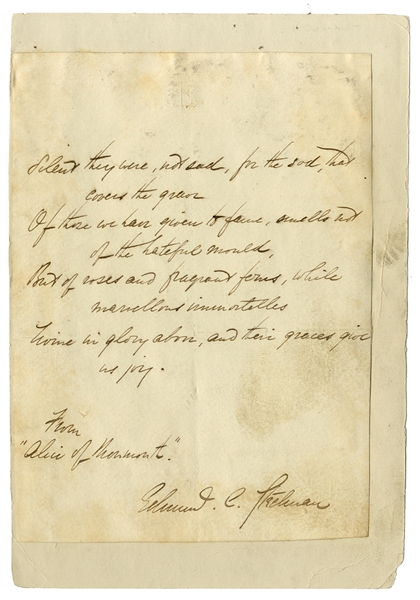 Silent they were, not sad, for the sod, that
covers the grave
Of those we have given to fame, smells not
of the hateful mould,
But of roses and fragrant ferns, while
marvellous immortelles
Twine in glory above, and their graces give
us joy.
From
"Alice of Monmouth."
Edmund. C. Stedman